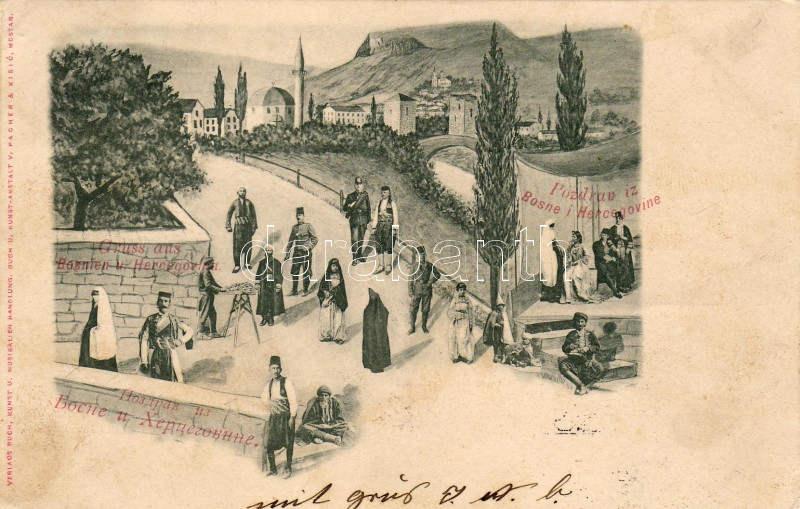 VERLAGS BUCH, KUNST U. MUSIKALIEN HANDLUNG. BUCH U. KUNST-ANSTALT V. PACHER & KISIĆ, MOSTAR.
Gruss aus
Bosnien u. Hercegovina.
Pozdrav iz
Bosne i Hercegovine
darabanth
Поздрав из
Босне и Херцеговине.
mit grüs